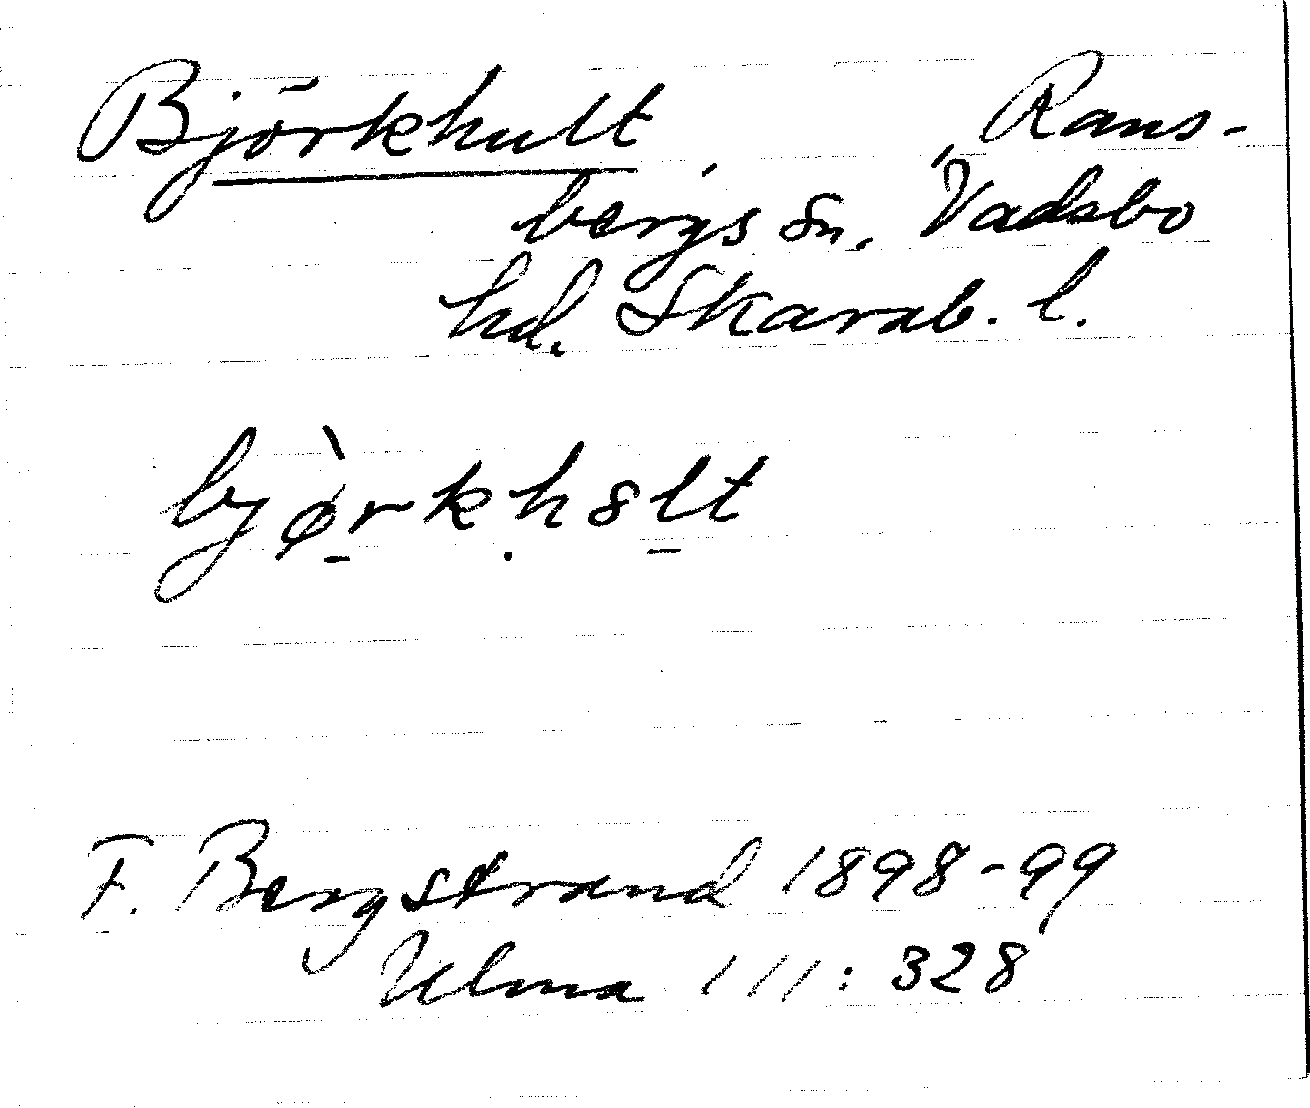 Björkhult, Rans-
bergs sn, Vadsbo
hd. Skarab. l.
bjø̀rkhɵlt
F. Bergstrand 1898-99
Ulma 111:328